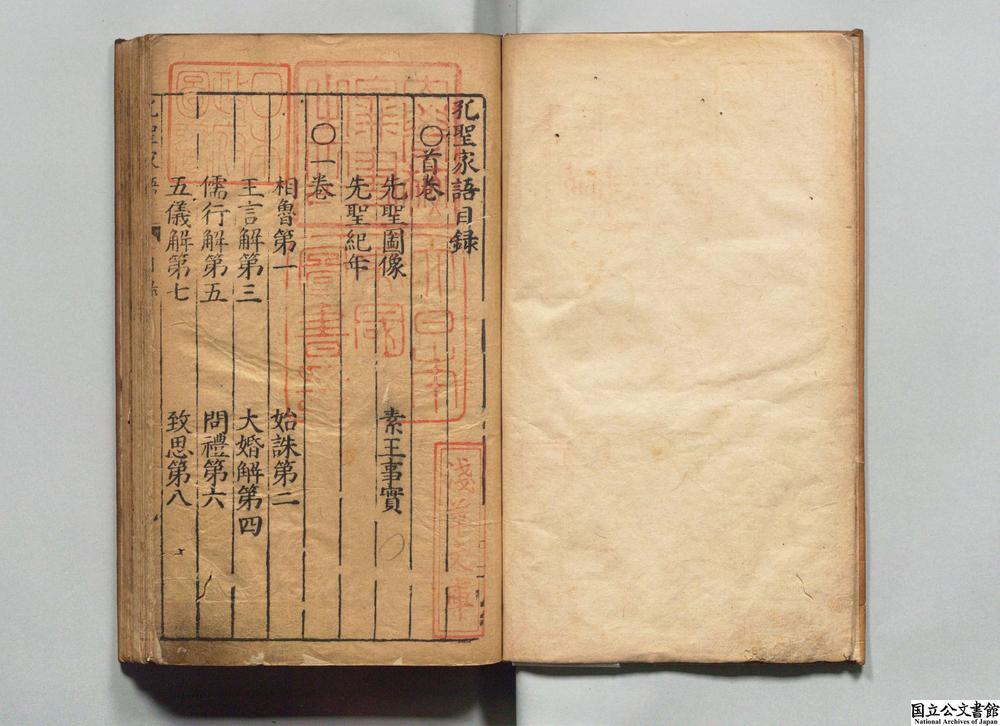 孔聖家語目録
〇首卷
先聖圖像 素王事實
先聖紀年
〇一卷
相魯第一 始誅第二
王言解第三 大婚解第四
儒行解第五 問禮第六
五儀解第七 致思第八
淺草文庫
日本
國
圖書
国立公文書館
National Archives of Japan